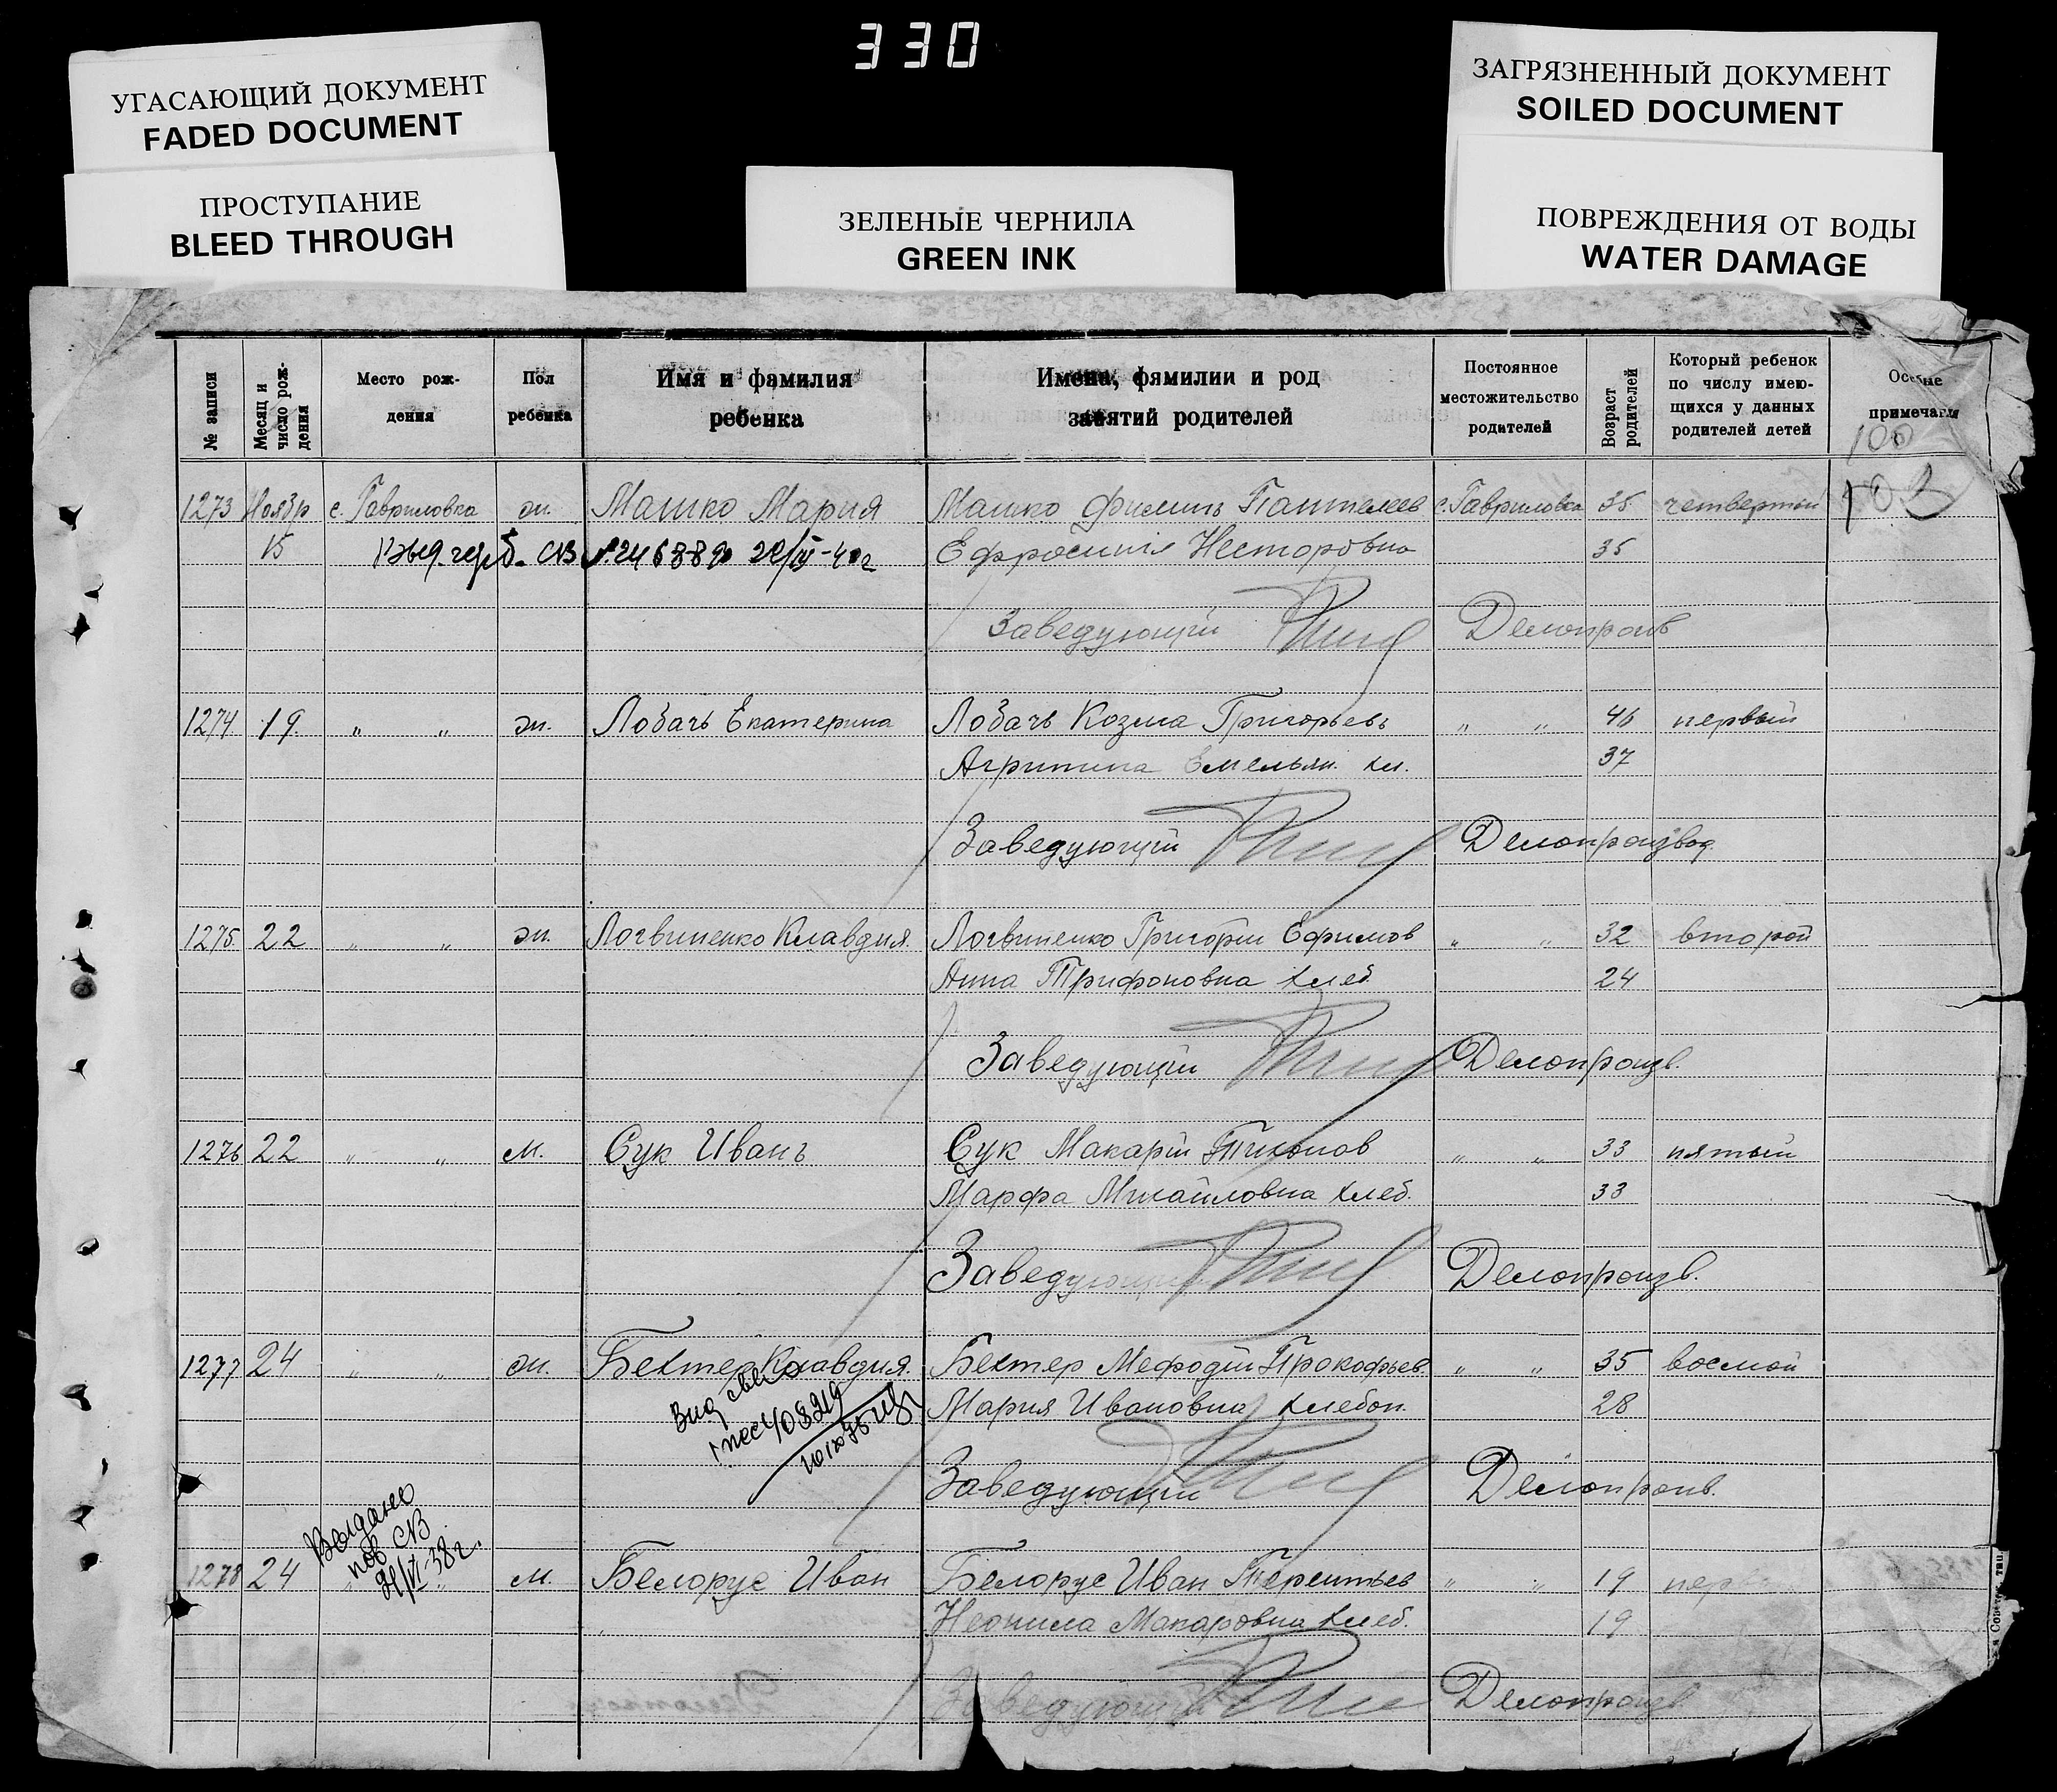 330
УГАСАЮЩИЙ ДОКУМЕНТ
FADED DOCUMENT
ПРОСТУПАНИЕ
BLEED THROUGH
ЗЕЛЕНЫЕ ЧЕРНИЛА
GREEN INK
ЗАГРЯЗНЕННЫЙ ДОКУМЕНТ
SOILED DOCUMENT
ПОВРЕЖДЕНИЯ ОТ ВОДЫ
WATER DAMAGE
№ записи
Месяц и число рождения
Место рож-
дения
Пол
ребенка
Имя и фамилия
ребенка
Имена, фямилии и род
занятий родителей
Постоянное
местожительство
родителей
Возраст
родителей
Который ребенок
по числу имею-
щихся у данных
родителей детей
Особые
примечания
100
1273 Ноябр с. Гавриловка эн. Машко Мария Машко Филипъ Пантелеев с. Гавриловка 35 четвертый
15 СВ №. 246889 Ефросиния Несторовна 35
Заведующий Делопроизв
1274 19. " " эн. Лобачъ Екатерина Лобачъ Козма Григорьевъ " " 46 первый
Агрипина Емельян. хл. 37
Заведующий Делопроизвод.
1275 22 " " эн. Логвиненко Клавдия. Логвиненко Григорій Ефимов " " 32 второй
Анна Трифоновна хлеб. 24
Заведующий Делопроизв.
1276 22 " " м. Сук Иванъ Сук Макарій Тихонов " " 33 пятый
Марфа Михайловна хлеб. 33
Заведующий Делопроизв.
1277 24 " " эн. Бехтер Клавдия. Бехтер Мефодій Прокофьев. " " 35 восмой
Мария Ивановна хлебоп. 28
Заведующий Делопроизв.
Выдано
пов СВ
1278 24 " " м. Белорус Иван Белорус Иван Терентьев " " 19 перв
Неонила Макаровна хлеб. 19
Заведующий Делопроизв